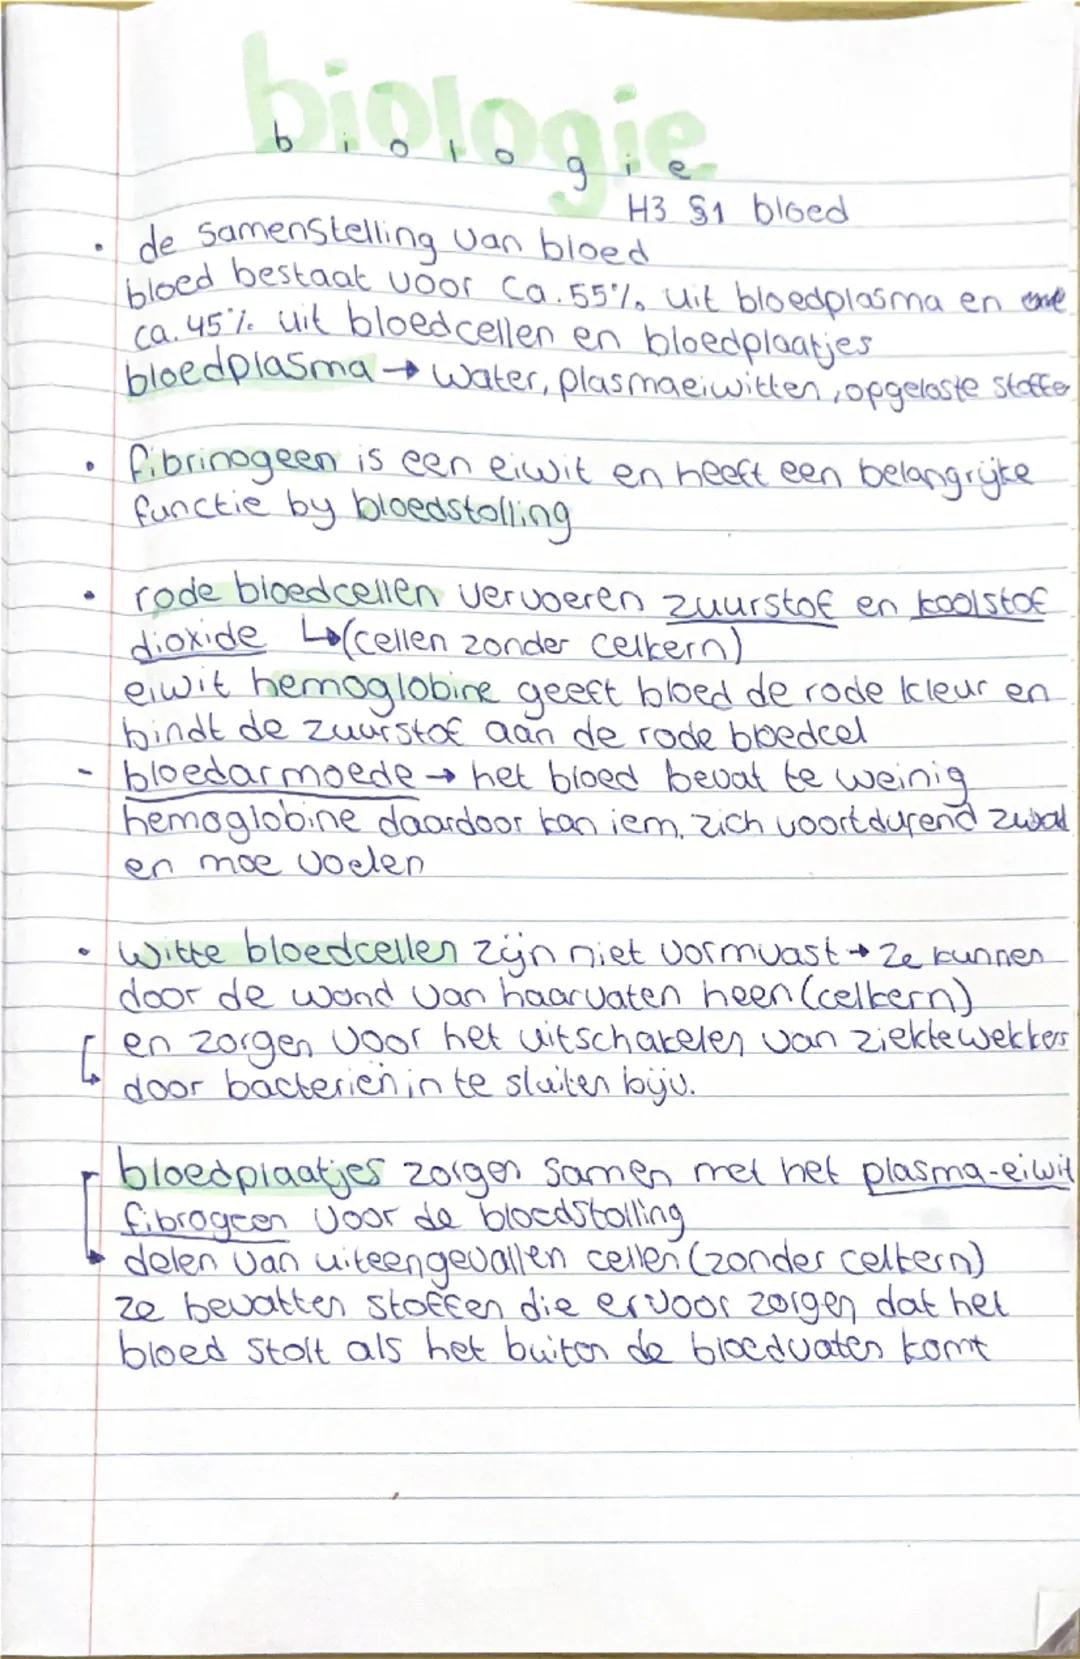 biologie
b i o l o g i e
H3 §1 bloed
• de samenstelling van bloed
bloed bestaat voor ca. 55% uit bloedplasma en
ca. 45% uit bloedcellen en bloedplaatjes
bloedplasma → water, plasmaeiwitten, opgeloste stoffe
• fibrinogeen is een eiwit en heeft een belangrijke
functie by bloedstolling
• rode bloedcellen vervoeren zuurstof en koolstof
dioxide ↳ (cellen zonder celkern)
eiwit hemoglobine geeft bloed de rode kleur en
bindt de zuurstof aan de rode bloedcel
- bloedarmoede → het bloed bevat te weinig
hemoglobine daardoor kan iem. zich voortdurend zwak
en moe voelen
• witte bloedcellen zijn niet vormvast → ze kunnen
door de wand van haarvaten heen (celkern)
en zorgen voor het uitschakelen van ziektewekkers
door bacteriën in te sluiten bijv.
bloedplaatjes zorgen samen met het plasma-eiwit
fibrogeen voor de bloedstolling
delen van uiteengevallen cellen (zonder celkern)
ze bevatten stoffen die ervoor zorgen dat het
bloed stolt als het buiten de bloedvaten komt